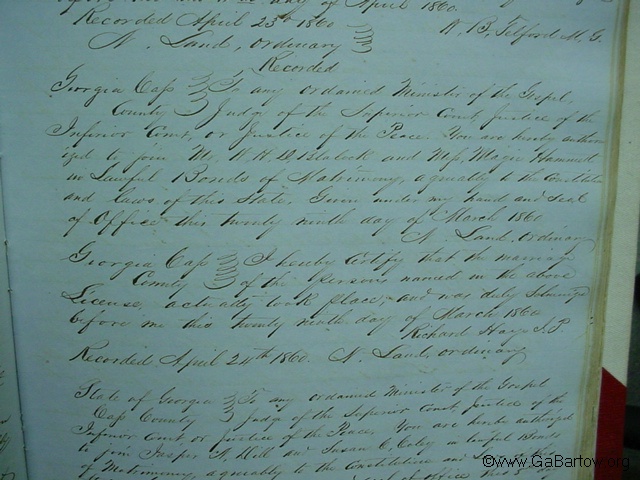 day of April 1860.
Recorded April 23th 1860 W. B. Telford M. G.
N. Land, ordinary
Recorded
Georgia Cass To any ordained Minister of the Gospel,
County Judge of the Superior Court, Justice of the
Inferior Court, or Justice of the Peace. You are hereby author
ized to join Mr. W. H. D Blalock and Miss Hammed
in Lawful Bonds of Matrimony, agreeably to the Constitution
and laws of this State. Given under my hand and Seal
of Office this twenty ninth day of March 1860
N. Land, ordinary
Georgia Cass I hereby Certify that the marriage
County of the persons named in the above
License, actually took place, and was duly Solemnized
before me this twenty ninth day of March 1860
Richard Hays J.P.
Recorded April 24th 1860. N. Land, ordinary
State of Georgia To any ordained Minister of the Gospel
Cass County Judge of the Superior Court, Justice of the
Inferior Court, or Justice of the Peace. You are hereby authorized
to join Jasper N. Hill and Susan C. in lawful Bonds
of Matrimony, agreeably to the Constitution and
©www.GaBartow.org